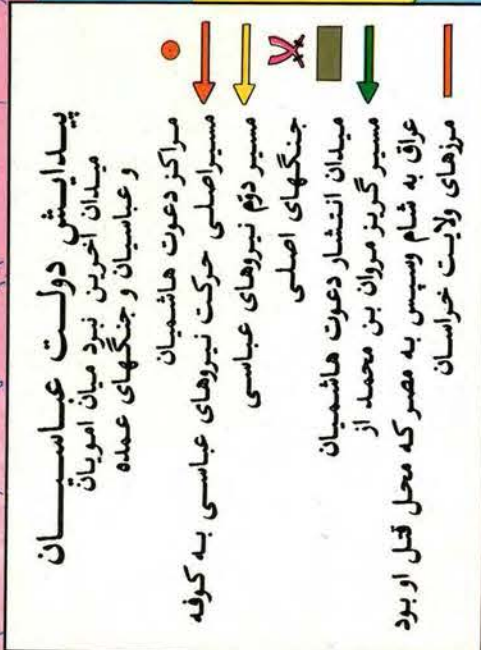 پیدایش دولت عباسیان
میدان آخرین نبرد میان امویان
و عباسیان و جنگهای عمده
مراکز دعوت هاشمیان
مسیر اصلی حرکت نیروهای عباسی به کوفه
مسیر دوّم نیروهای عباسی
جنگهای اصلی
میدان انتشار دعوت هاشمیان
مسیر گریز مروان بن محمد از
عراق به شام وسپس به مصر که محل قتل او بود
مرزهای ولایت خراسان